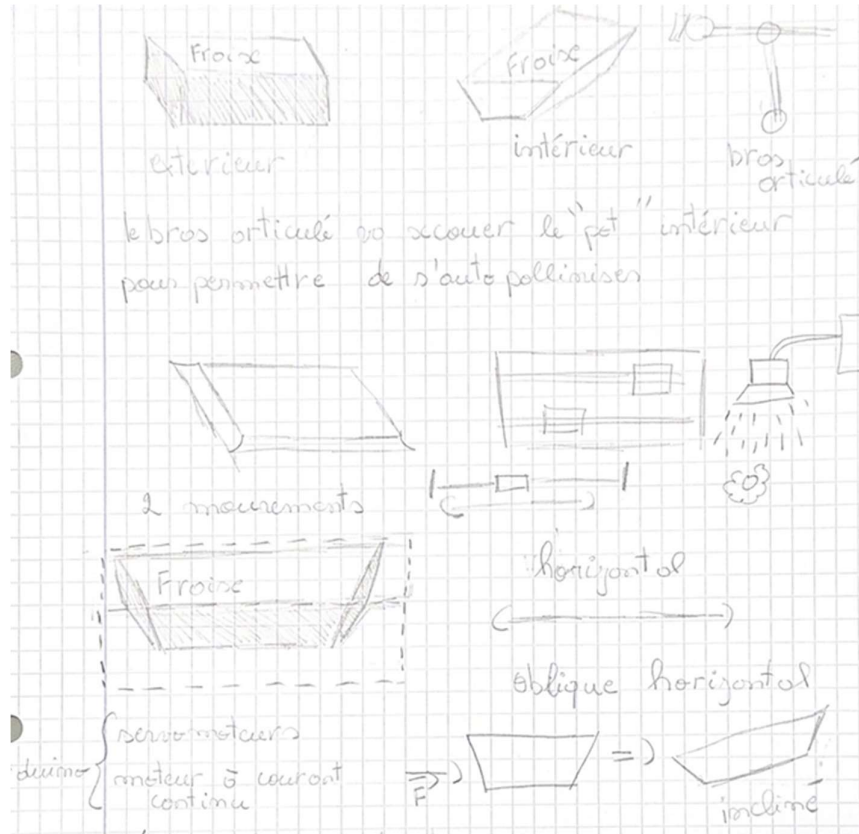 Fraise
Fraise
extérieur
intérieur
bras
articulé
le bras articulé va secouer le "pot" intérieur
pour permettre de s'auto polliniser
2 mouvements
Fraise
horizontal
oblique horizontal
servomoteurs
moteur à courant
continu
F
incliné